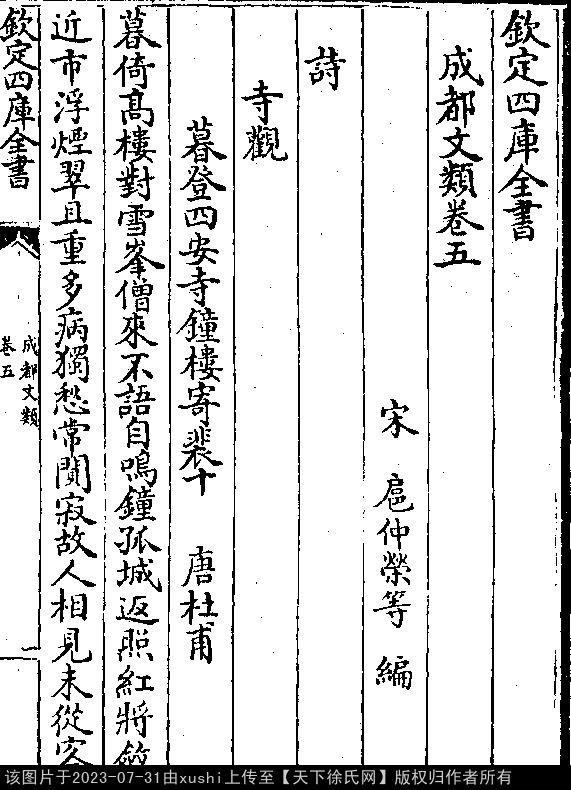 欽定四庫全書
成都文類卷五
宋 扈仲榮等 編
詩
寺觀
暮登四安寺鐘樓寄裴十 唐杜甫
暮倚髙樓對雪峯僧來不語自鳴鐘孤城返照紅將斂
近市浮煙翠且重多病獨愁常闃寂故人相見未從容
欽定四庫全書
成都文類
卷五
一
该图片于2023-07-31由xushi上传至【天下徐氏网】版权归作者所有